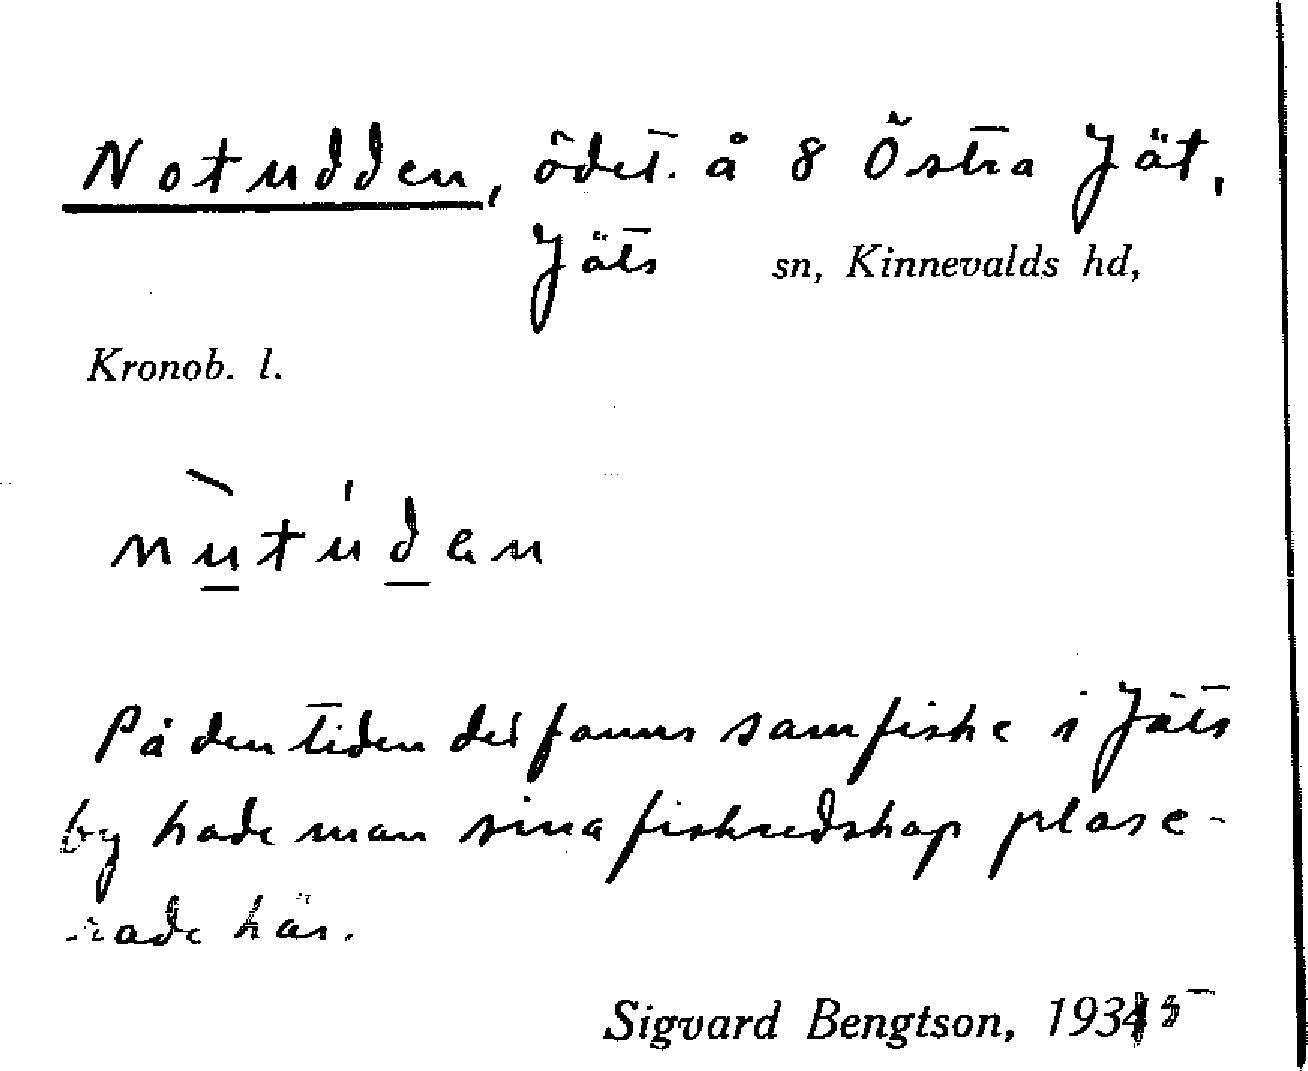 Notudden, ödet. å 8 Östra Jät,
Jäts sn, Kinnevalds hd,
Kronob. l.
nùtúdən
På den tiden det fanns samfiske i Jäts
by hade man sina fiskredskap plase-
rade här.
Sigvard Bengtson, 1935